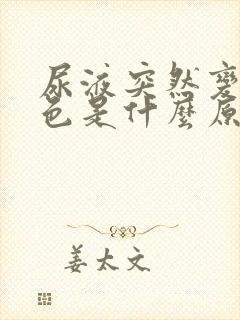 尿液突然變
色是什麼原
姜太文